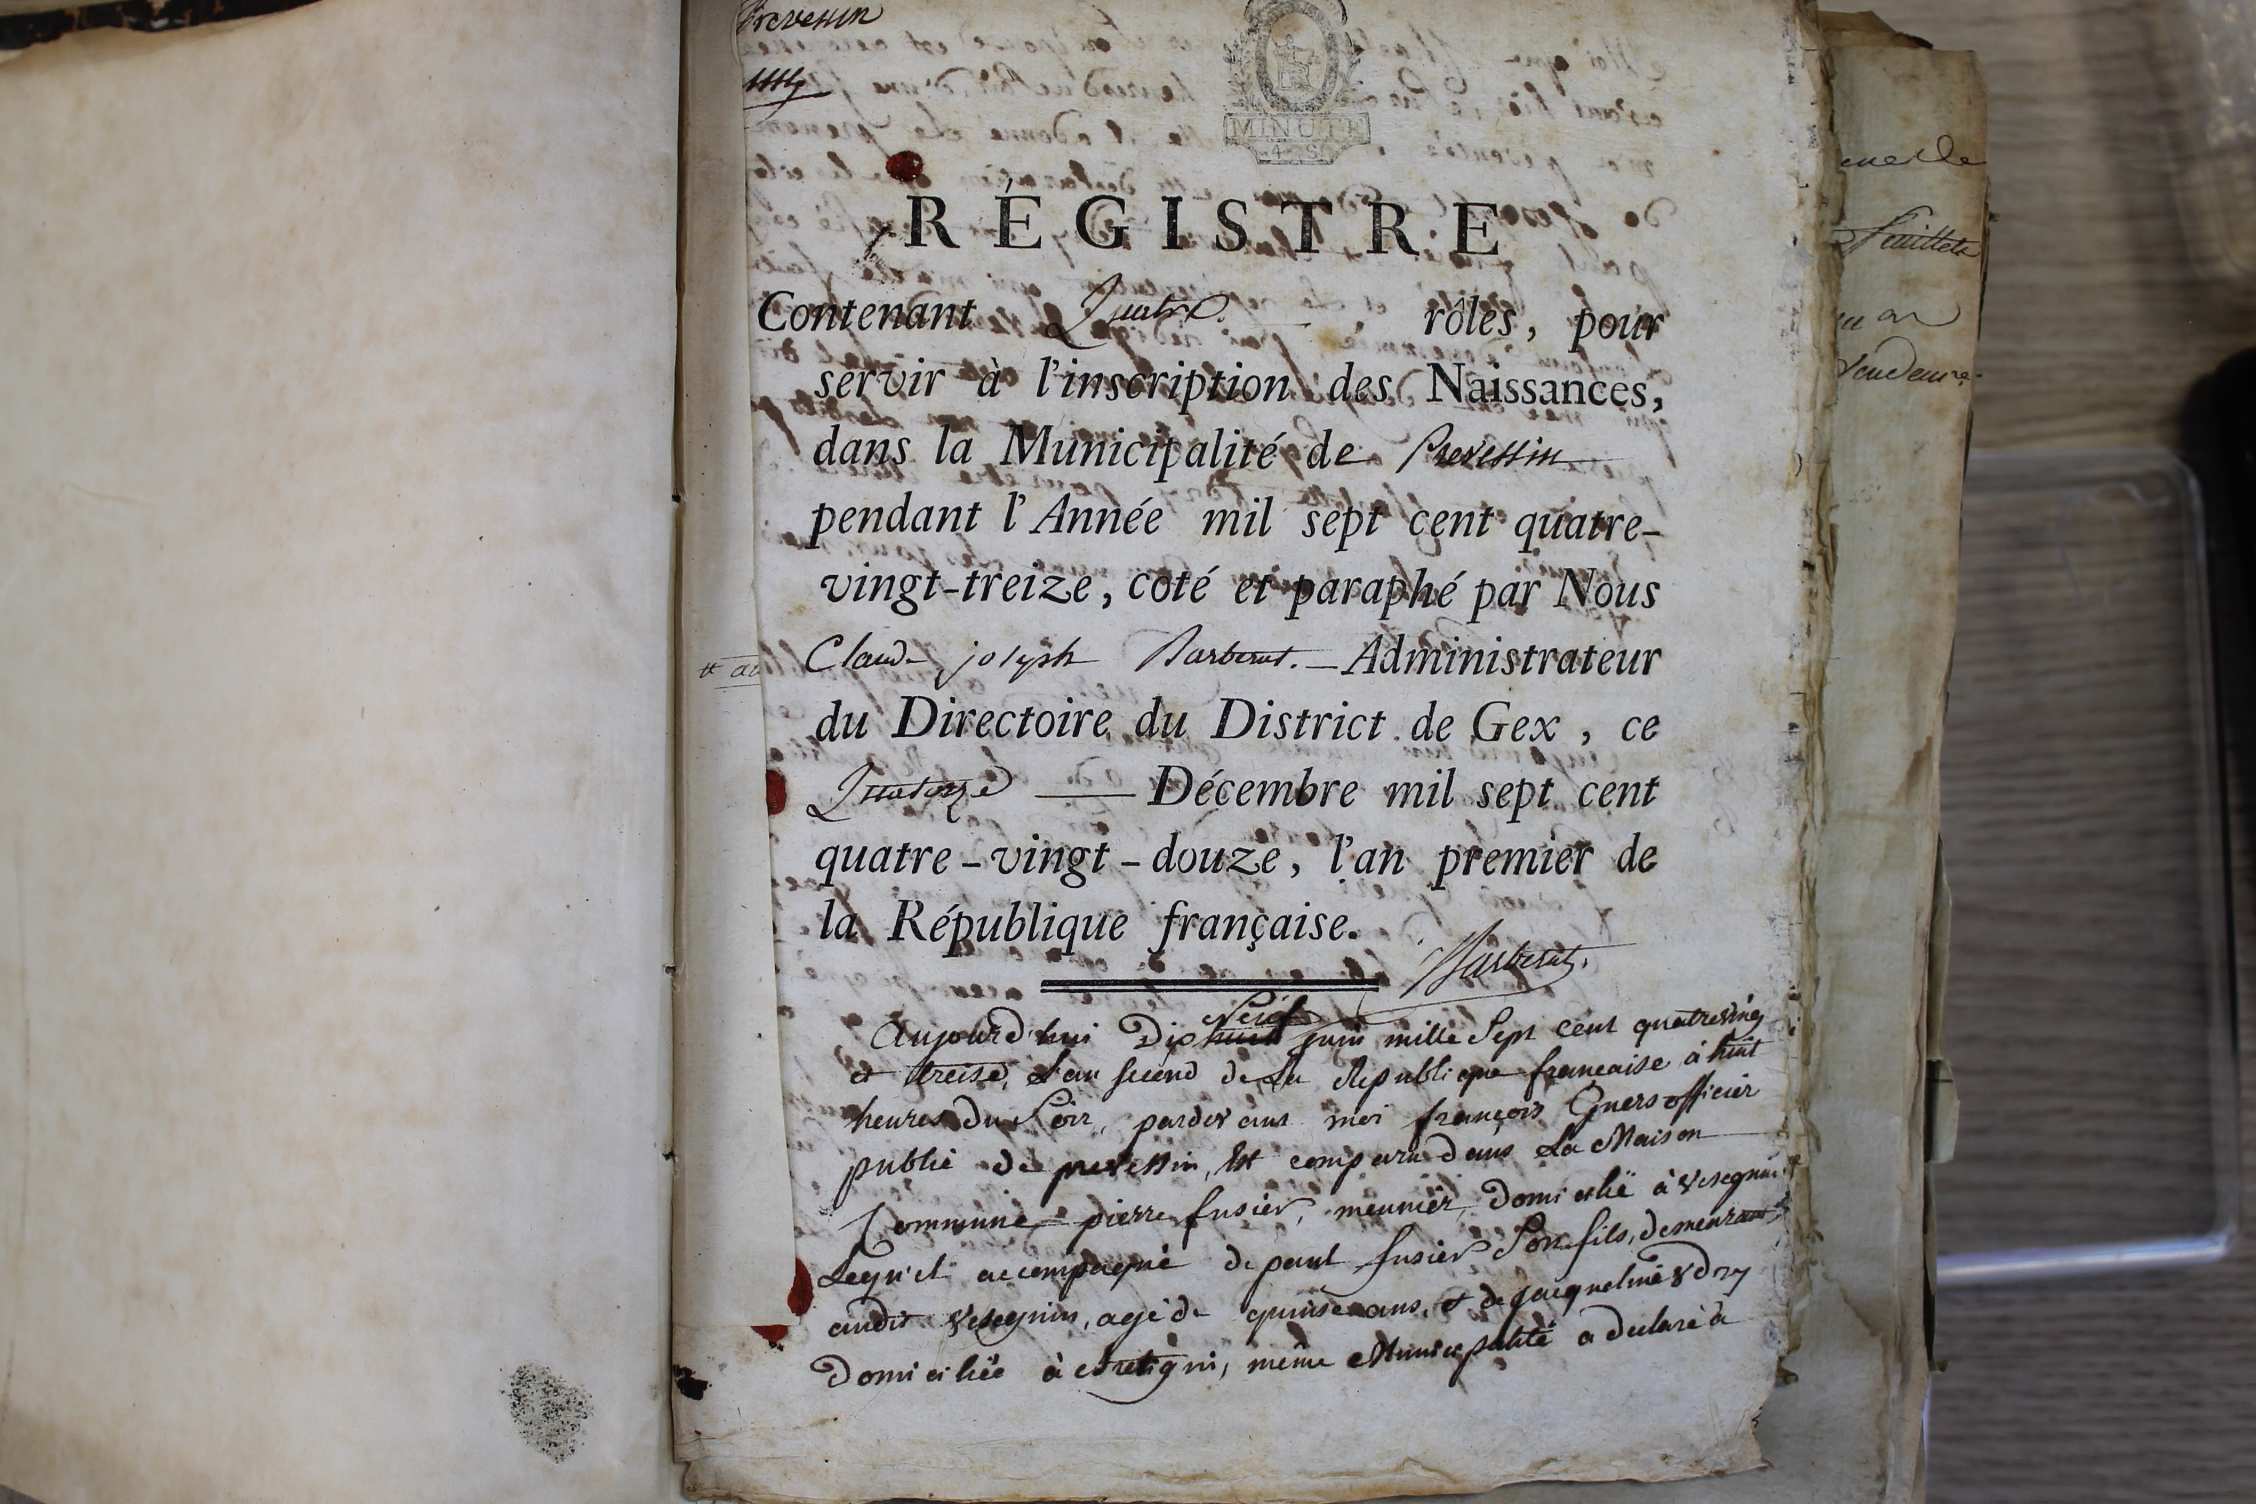 Prevessin
MINUTE
4 S.
RÉGISTRE
Contenant Quatre rôles, pour
servir à l'inscription des Naissances,
dans la Municipalité de Prevessin
pendant l'Année mil sept cent quatre-
vingt-treize, coté et paraphé par Nous
Claude joseph Barberat. — Administrateur
du Directoire du District de Gex, ce
Quatorze — Décembre mil sept cent
quatre-vingt-douze, l'an premier de
la République française.
Barberat.
neuf
aujourd'hui Dix huit juin mille Sept cent quatrevingt
et treise, L'an second de La Republique francaise à huit
heures du Soir, pardevant moi françois Guers officier
public de prevessin, Est comparu dans La Maison
Commune pierre fusier, meunier, Domicilié à vesegnin
Lequel accompagné de paul fusier Son fils, demeurant
audit vesegnin, agé de quinse ans, et de jacqueline vdry
Domiciliée à Bretigni, même Municipalité a declaré à
feuillets